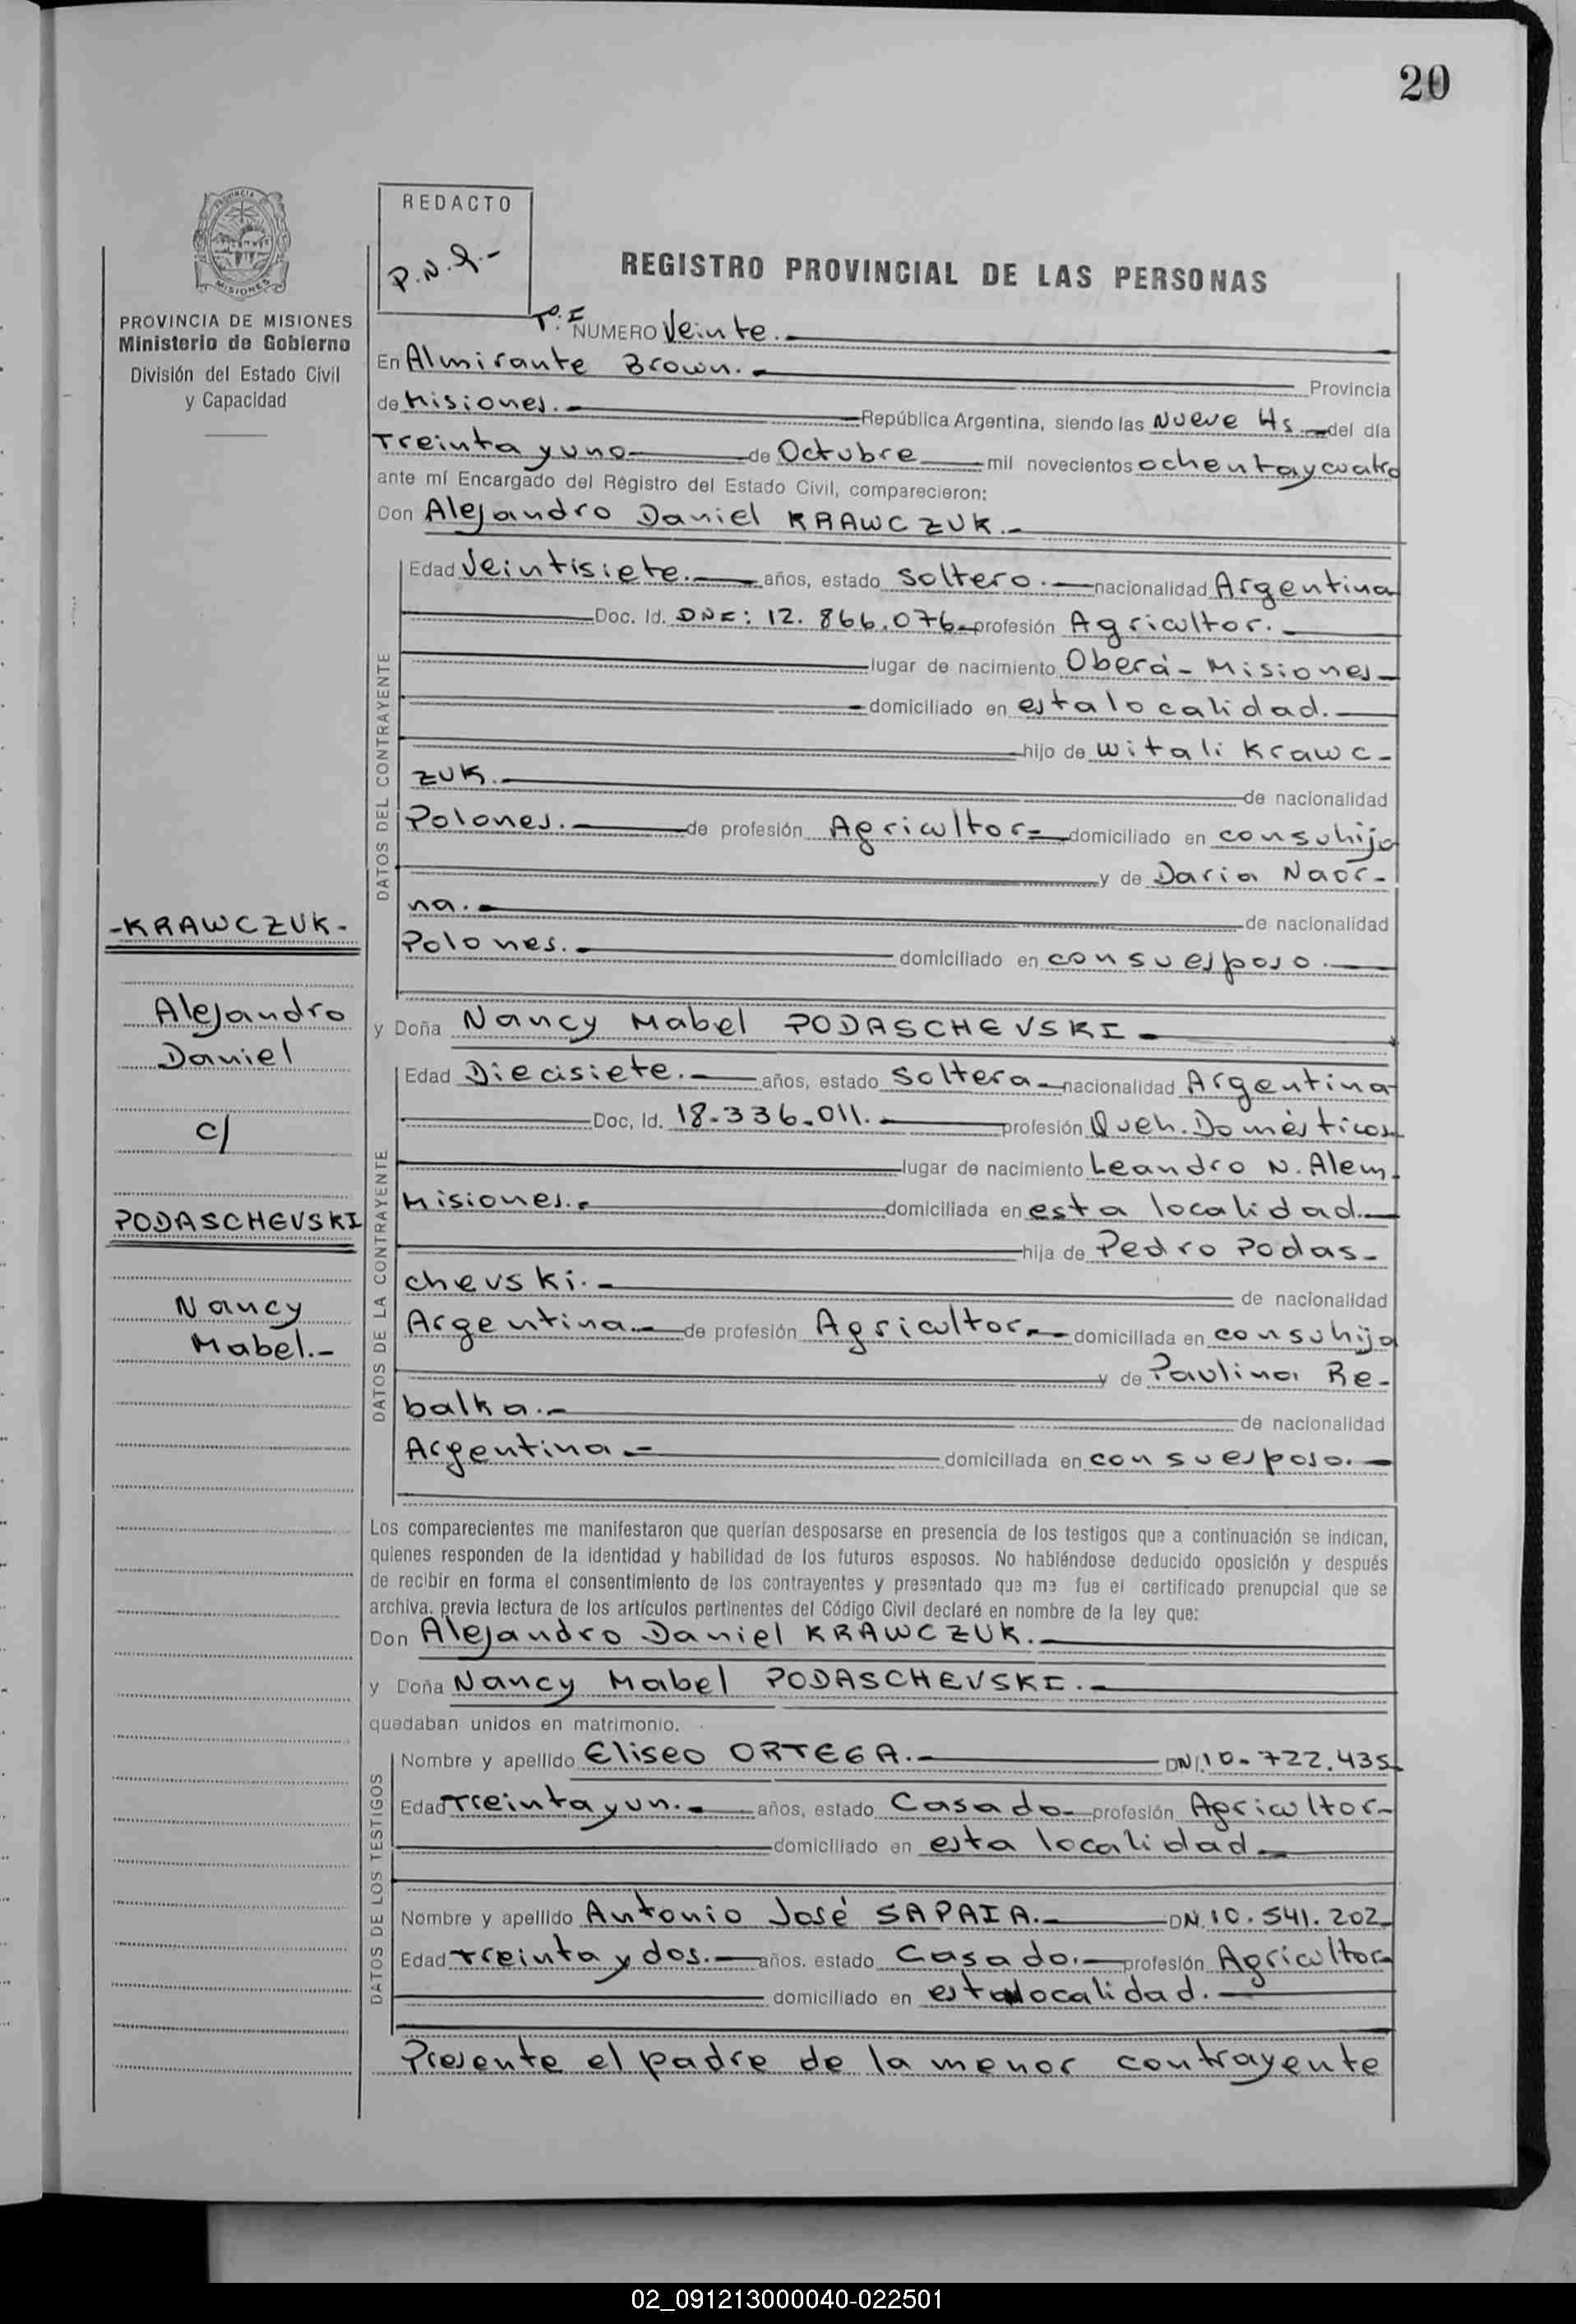 20
REDACTO
P.N.G.-
REGISTRO PROVINCIAL DE LAS PERSONAS
PROVINCIA DE MISIONES
Ministerio de Gobierno
División del Estado Civil
y Capacidad
Tº: I NUMERO Veinte.-
En Almirante Brown.- Provincia
de Misiones.- República Argentina, siendo las Nueve Hs.- del día
Treinta y uno de Octubre mil novecientos ochenta y cuatro
ante mí Encargado del Registro del Estado Civil, comparecieron:
Don Alejandro Daniel KRAWCZUK.-
DATOS DEL CONTRAYENTE
Edad Veintisiete.- años, estado Soltero.- nacionalidad Argentina
Doc. Id. DNI: 12.866.076.- profesión Agricultor.-
lugar de nacimiento Oberá-Misiones-
domiciliado en esta localidad.-
hijo de Witali Krawc-
zuk.- de nacionalidad
Polones.- de profesión Agricultor- domiciliado en con su hijo
y de Daria Naor-
na.- de nacionalidad
Polones.- domiciliado en con su esposo.-
y Doña Nancy Mabel PODASCHEVSKI-
DATOS DE LA CONTRAYENTE
Edad Diecisiete.- años, estado Soltera- nacionalidad Argentina-
Doc. Id. 18.336.011.- profesión Queh. Domésticos
lugar de nacimiento Leandro N. Alem-
Misiones.- domiciliada en esta localidad.-
hija de Pedro Podas-
chevski.- de nacionalidad
Argentina.- de profesión Agricultor.- domiciliada en con su hijo
y de Paulina Re-
balka.- de nacionalidad
Argentina.- domiciliada en con su esposo.-
-KRAWCZUK-
Alejandro
Daniel
c/
PODASCHEVSKI
Nancy
Mabel.-
Los comparecientes me manifestaron que querían desposarse en presencia de los testigos que a continuación se indican,
quienes responden de la identidad y habilidad de los futuros esposos. No habiéndose deducido oposición y después
de recibir en forma el consentimiento de los contrayentes y presentado que me fue el certificado prenupcial que se
archiva, previa lectura de los artículos pertinentes del Código Civil declaré en nombre de la ley que:
Don Alejandro Daniel KRAWCZUK.-
y Doña Nancy Mabel PODASCHEVSKI.-
quedaban unidos en matrimonio.
DATOS DE LOS TESTIGOS
Nombre y apellido Eliseo ORTEGA.- DNI.10.722.435-
Edad Treinta y un.- años, estado Casado- profesión Agricultor-
domiciliado en esta localidad-
Nombre y apellido Antonio José SAPAIA.- DN.10.541.202-
Edad Treinta y dos.- años, estado Casado.- profesión Agricultor-
domiciliado en esta localidad.-
Presente el padre de la menor contrayente
02_091213000040-022501